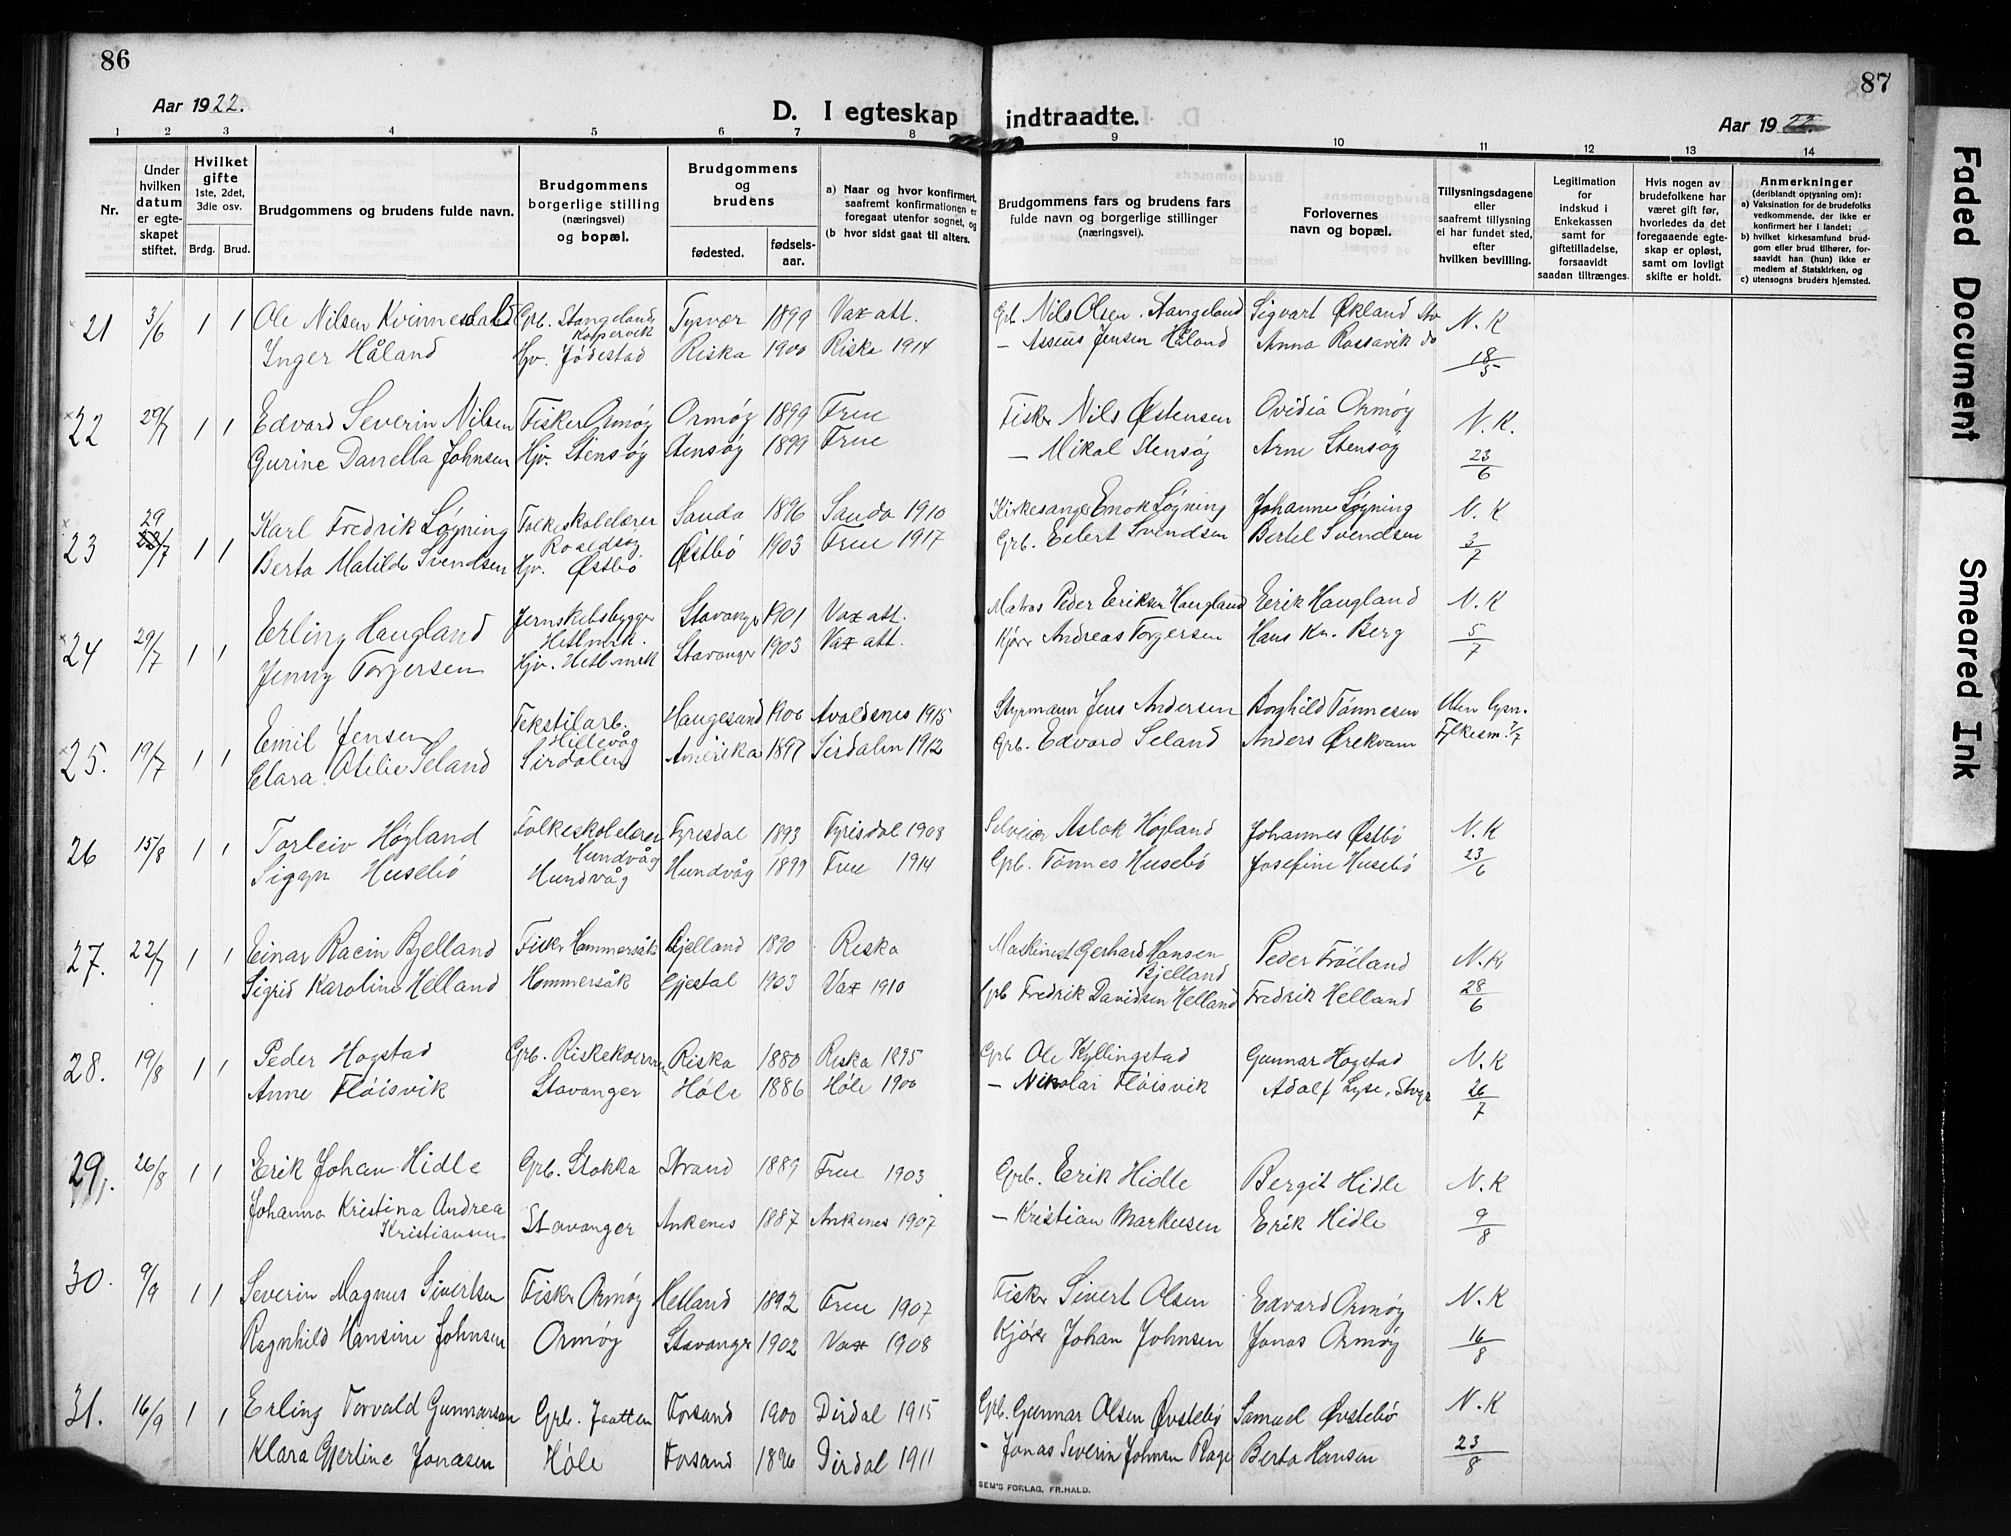 86
Aar 1922.
D. I egteskap
1 2 3 4 5 6 7 8
Nr.
Under hvilken datum er egte- skapet stiftet.
Hvilket gifte 1ste, 2det, 3die osv.
Brdg. Brud.
Brudgommens og brudens fulde navn.
Brudgommens borgerlige stilling (næringsvei) og bopæl.
Brudgommens og brudens
fødested.
fødsels- aar.
a) Naar og hvor konfirmert, saafremt konfirmationen er foregaat utenfor sognet, og
(b hvor sidst gaat til alters.
21 3/6 1 1 Ole Nilsen Kvinnesland Grb. Stangeland, Kopervik Tysvær 1899 Vax att.
Inger Håland Hjv. Jødestad Riska 1900 Riska 1914
22 29/7 1 1 Edvard Severin Nilsen Fisker Ormøy Ormøy 1899 Frue
Gurine Danella Johnsen Hjv. Stensøy Stensøy 1899 Frue
23 29/7 1 1 Karl Fredrik Løyning Folkeskolelærer Sauda 1896 Sauda 1910
Berta Matilde Svendsen Hjv. Østbø Østbø 1903 Frue 1917
24 29/7 1 1 Erling Haugland Jernskibsbygger Hetlmrk. Stavanger 1901 Vax att.
Jenny Torgersen Hjv. Hetlmrk Stavanger 1903 Vax att.
25. 19/7 1 1 Emil Jensen Tekstilarb. Hillevåg Haugesund 1900 Avaldsnes 1915
Clara Otilie Seland Sirdalen Amerika 1897 Sirdalen 1912
26 15/8 1 1 Torleiv Høgland Folkeskolelærer Hundvåg Fyrisdal 1893 Fyrisdal 1908
Sigyn Husebø Hundvåg Hundvåg 1899 Frue 1914
27. 22/7 1 1 Einar Racin Bjelland Fisker Hommersåk Bjelland 1890 Riska
Sigrid Karoline Helland Hommersåk Gjestal 1903 Vax 1910
28. 19/8 1 1 Peder Hogstad Grb. Riska 1880 Riska 1895
Anne Fløisvik Stavanger Høle 1886 Høle 1900
29. 26/8 1 1 Erik Johan Hidle Grb. Stokka Strand 1889 Frue 1903
Johanna Kristina Andrea Kristiansen Stavanger Ankenes 1887 Ankenes 1907
30. 9/9 1 1 Severin Magnus Sivertsen Fisker Ormøy Hetland 1892 Frue 1907
Ragnhild Hansine Johnsen Ormøy Stavanger 1902 Vax 1908
31. 16/9 1 1 Erling Torvald Gunnarson Grb. Jaatten Forsand 1900 Dirdal 1915
Klara Gjertine Jonasen Høle Forsand 1896 Dirdal 1911
87
indtraadte.
Aar 1922
9 10 11 12 13 14
Brudgommens fars og brudens fars fulde navn og borgerlige stillinger (næringsvei).
Forlovernes navn og bopæl.
Tillysningsdagene eller saafremt tillysning ei har fundet sted, efter hvilken bevilling.
Legitimation for indskud i Enkekassen samt for giftetilladelse, forsaavidt saadan tiltrænges.
Hvis nogen av brudefolkene har været gift før, hvorledes da det foregaaende egte- skap er opløst, samt om lovligt skifte er holdt.
Anmerkninger (deriblandt oplysning om):
a) Vaksination for de brudefolks vedkommende, der ikke er konfirmert her i landet;
b) hvilket kirkesamfund brud- gom eller brud tilhører, for- saavidt han (hun) ikke er medlem af Statskirken, og
c) utensogns bruders hjemsted.
Grb. Nils Olsen Stangeland Sigvart Økland Stv N. K
— Asseus Jensen Håland Anna Rossavik do 18/5
Fisker Nils Østensen Ovidia Ormøy N. K.
— Mikal Stensøy Arne Stensøy 23/6
Kirkesanger Enok Løyning Johanne Løyning N. K
Grb. Eilert Svendsen Bertel Svendsen 3/7
Matros Peder Eriksen Haugland Erik Haugland N. K
Kjører Andreas Torgersen Hans Kr. Berg 5/7
Styrmann Jens Andersen Borghild Tønnesen Uten lysn.
Grb. Edvard Seland Anders Ørekvam Fylkesm. 7/7
Selveier Aslak Høgland Johannes Østbø N. K
Grb. Tønnes Husebø Josefine Husebø 23/6
Maskinist Gerhard Hansen Bjelland Peder Frøiland N. K,
Grb Fredrik Davidsen Helland Fredrik Helland 28/6
Grb Ole Kyllingstad Gunnar Hogstad N. K
— Nikolai Fløisvik Adolf Lyse, Stvgr 26/7
Grb. Erik Hidle Bergit Hidle N. K
— Kristian Markusen Erik Hidle 9/8
Fisker Sivert Olsen Edvard Ormøy N. K
Kjører Johan Johnsen Jonas Ormøy 16/8
Grb. Gunnar Olsen Øvstebø Samuel Øvstebø N. K
— Jonas Severin Johnsen Rage Berta Hansen 23/8
SEM'S FORLAG, FR.HALD.
Faded Document
Smeared Ink